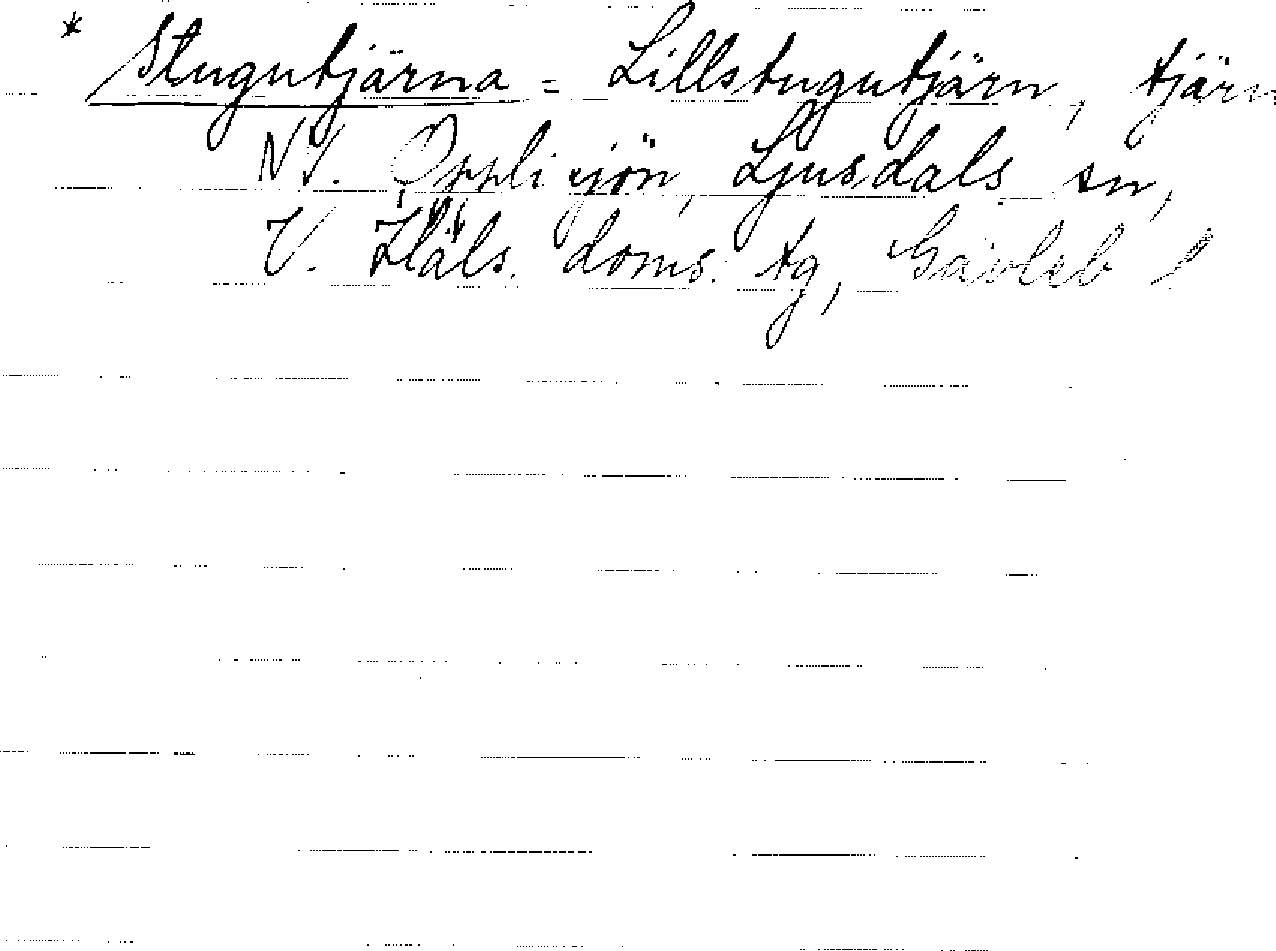 * Stugutjärna = Lillstugutjärn, tjärn
NV. Öpplisjön, Ljusdals sn,
V. Häls. doms. tg, Gävleb l